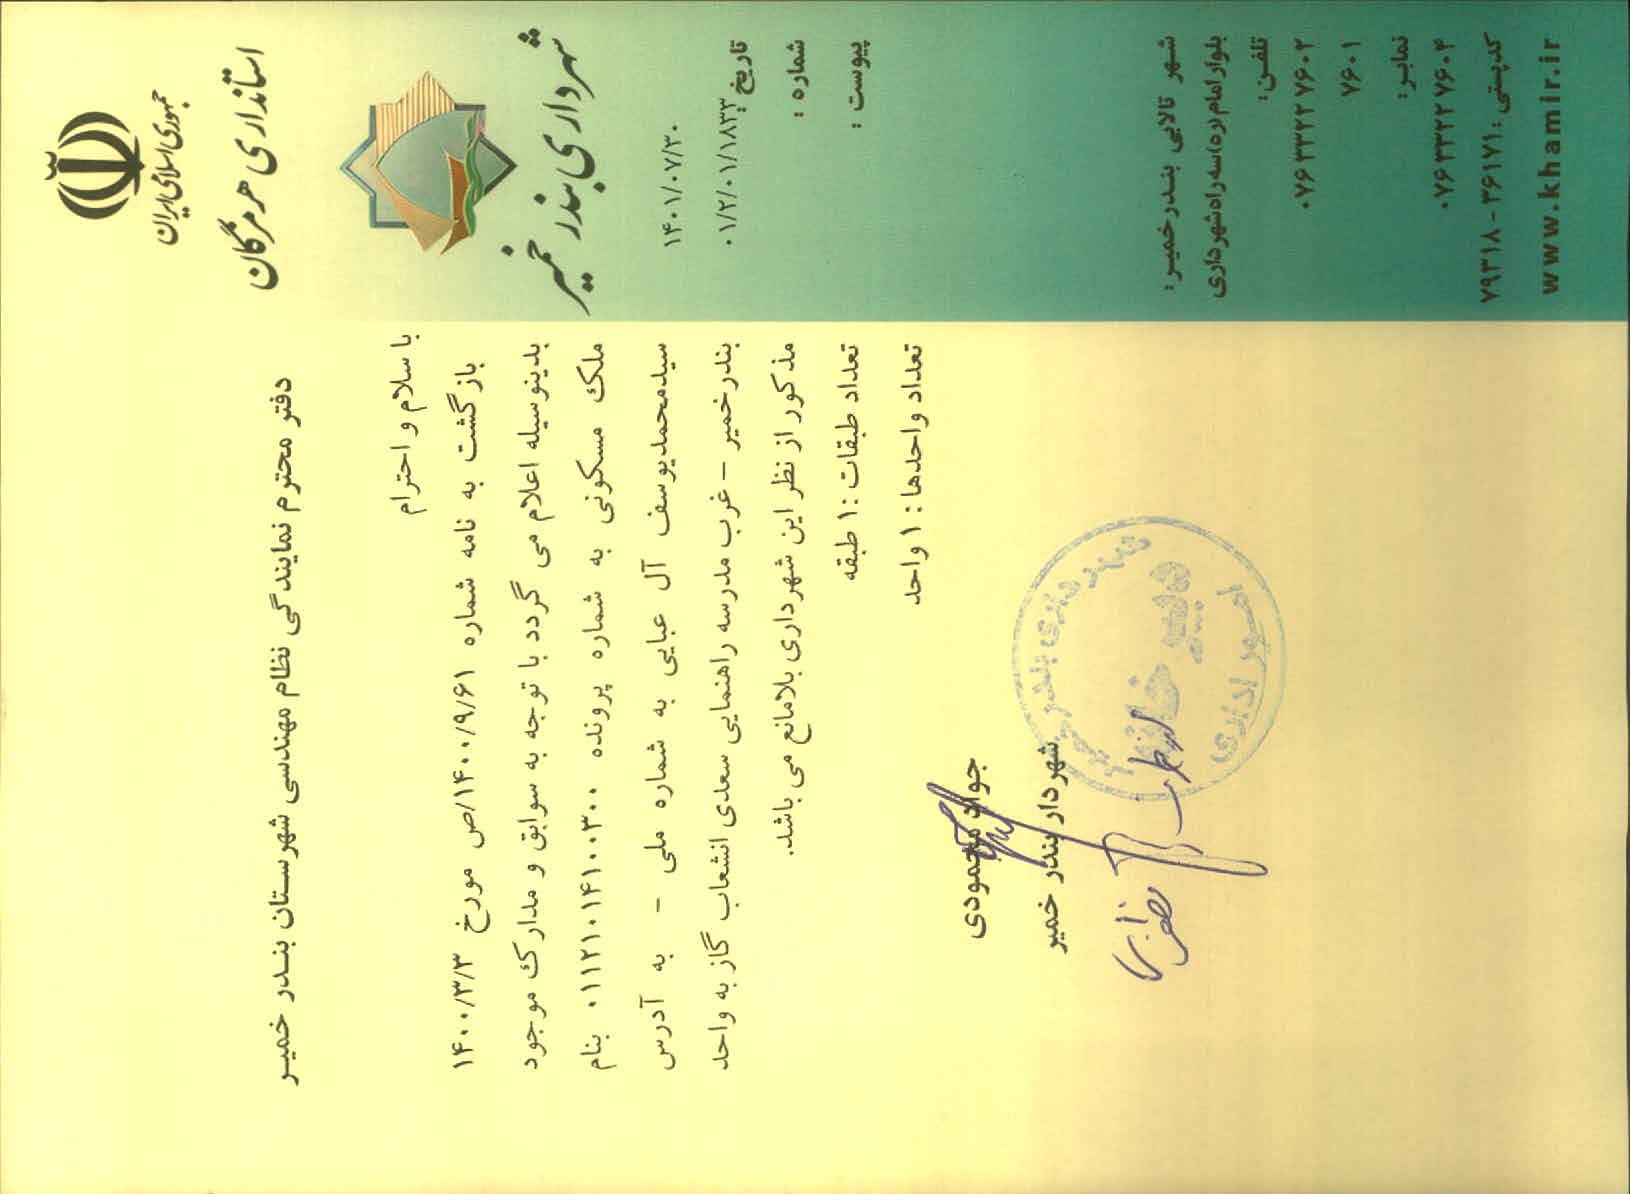 جمهوری اسلامی ایران
استانداری هرمزگان
شهرداری بندر خمیر
۱۴۰۱/۰۷/۳۰
تاریخ :
۰۱/۲/۰۱/۱۸۳۳
شماره :
پیوست :
دفتر محترم نمایندگی نظام مهندسی شهرستان بندر خمیر
با سلام و احترام
بازگشت به نامه شماره ۱۴۰۰/۹/۶۱/ص مورخ ۱۴۰۰/۳/۳
بدینوسیله اعلام می گردد با توجه به سوابق و مدارک موجود
ملک مسکونی به شماره پرونده ۰۱۱۲۱۰۱۴۱۰۰۳۰۰ بنام
سیدمحمدیوسف آل عبایی به شماره ملی - به آدرس
بندرخمیر - غرب مدرسه راهنمایی سعدی انشعاب گاز به واحد
مذکور از نظر این شهرداری بلامانع می باشد.
تعداد طبقات : ۱ طبقه
تعداد واحدها : ۱ واحد
جواد محمودی
شهردار بندر خمیر
شهرداری بندر خمیر
دبیرخانه
امور اداری
شهر تالابی بندرخمیر:
بلوار امام (ره) سه راه شهرداری
تلفن:
۰۷۶۳۳۲۲۷۶۰۲
۷۶۰۱
نمابر:
۰۷۶۳۳۲۲۷۶۰۴
کدپستی : ۳۶۱۷۱ - ۷۹۳۱۸
www.khamir.ir